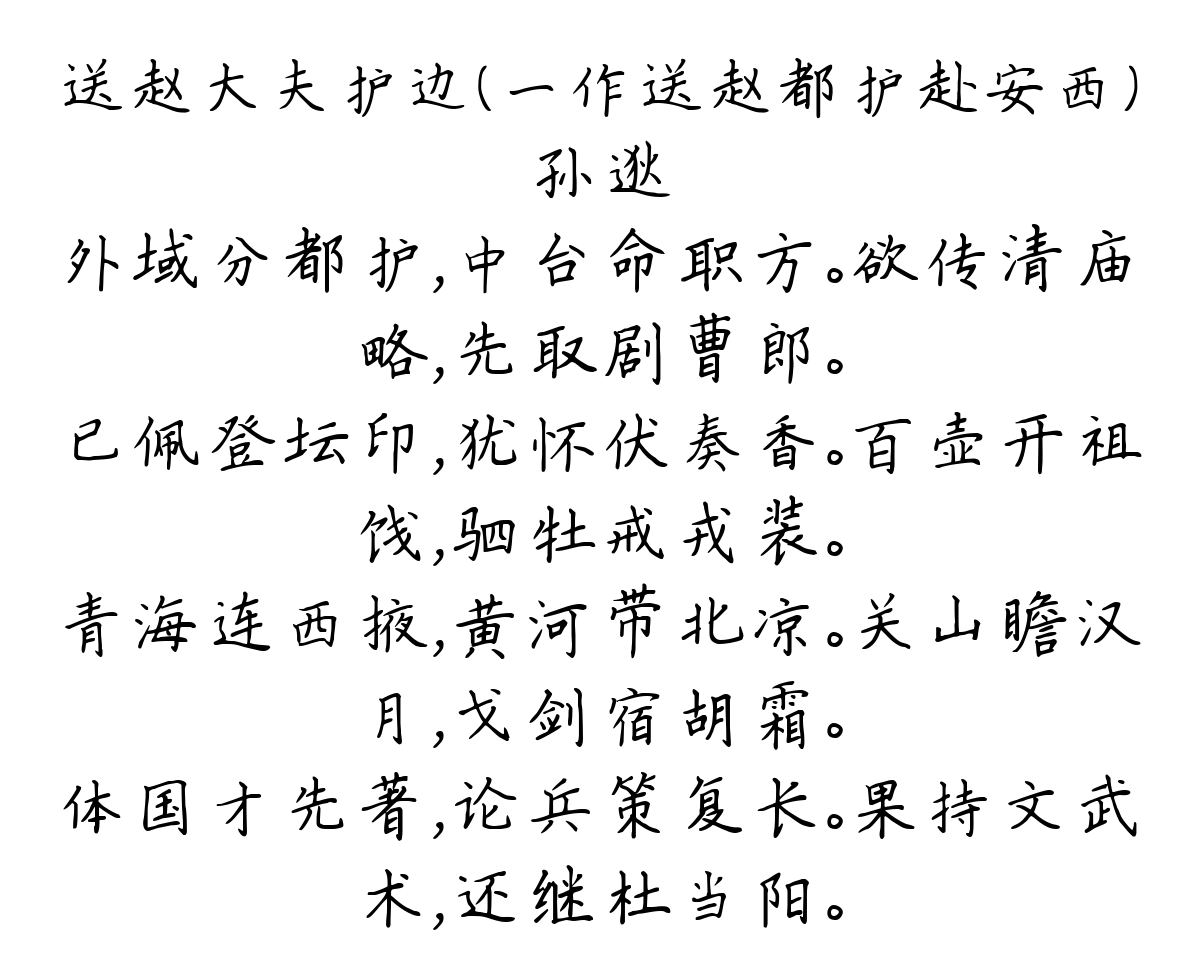 送赵大夫护边(一作送赵都护赴安西)
孙逖
外域分都护,中台命职方。欲传清庙
略,先取剧曹郎。
已佩登坛印,犹怀伏奏香。百壶开祖
饯,驷牡戒戎装。
青海连西掖,黄河带北凉。关山瞻汉
月,戈剑宿胡霜。
体国才先著,论兵策复长。果持文武
术,还继杜当阳。